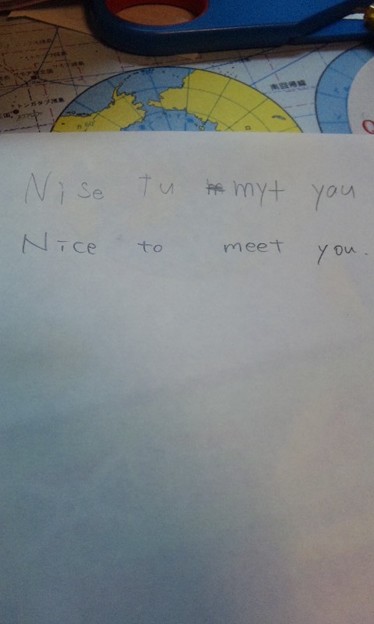 Nise tu myt you
Nice to meet you.